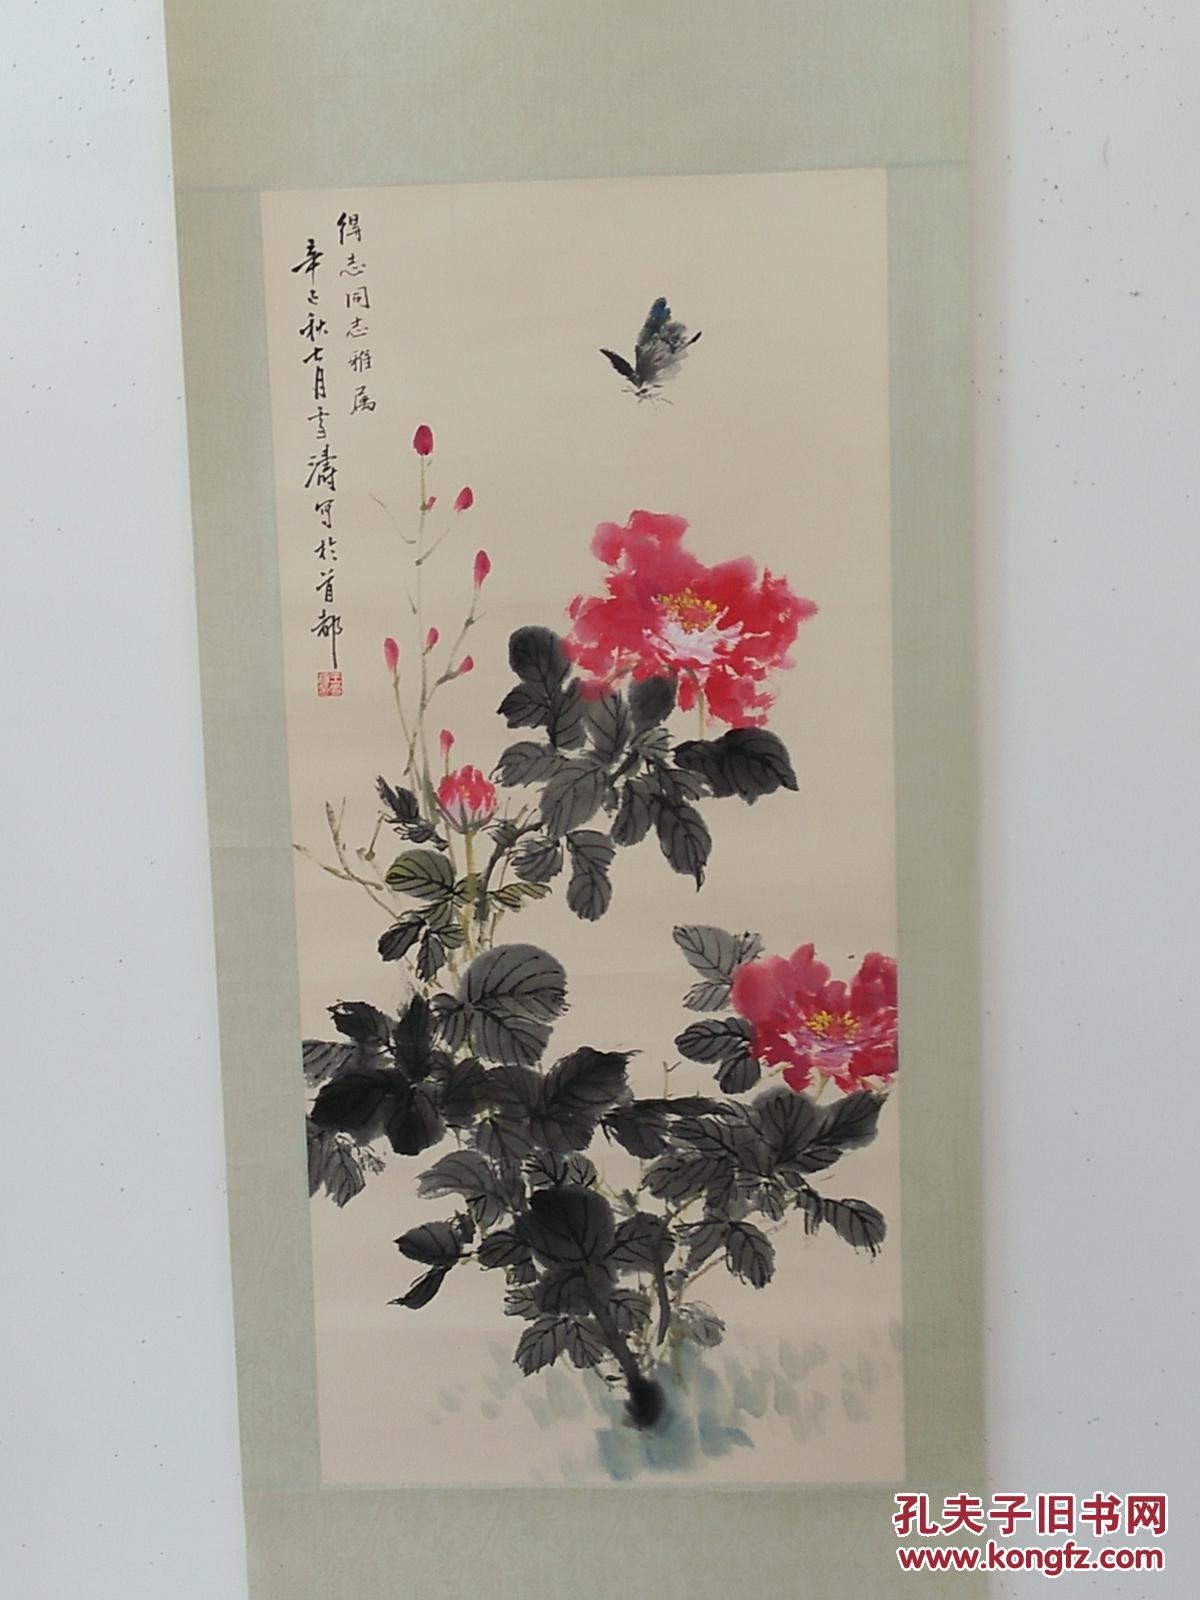 得志同志雅属
辛已秋七月雪涛写於首都
孔夫子旧书网
www.kongfz.com